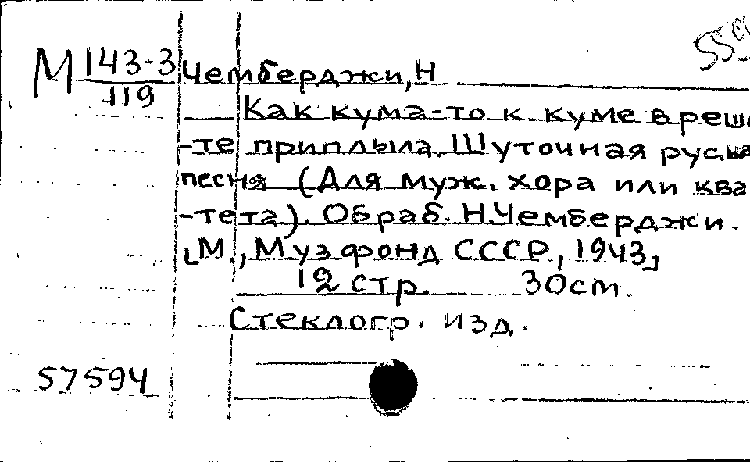 М 143-3 Чемберджи, Н
119
Как кума-то к куме в реше
-те приплыла. Шуточная
песня (Для муж. хора или ква
-тета). Обраб. Н.Чемберджи.
[М., Музфонд СССР, 1943]
12 стр. 30см.
Стеклогр. изд.
57594